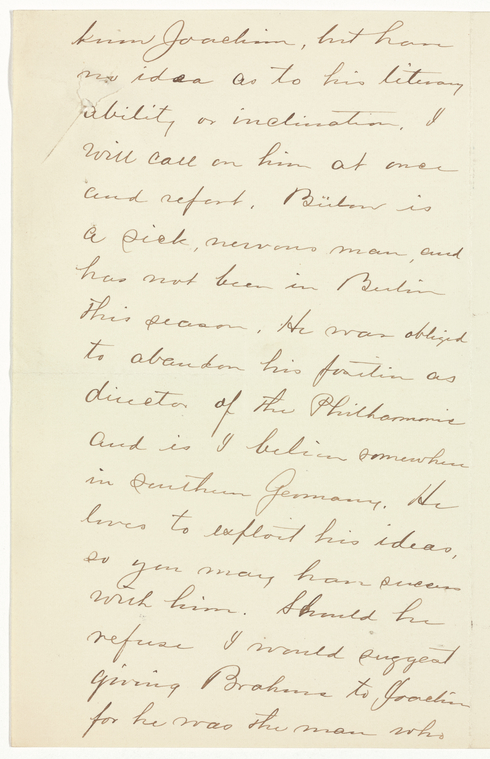 know Joachim, but have
no idea as to his literary
ability or inclination. I
will call on him at once
and report. Bülow is
a sick, nervous man, and
has not been in Berlin
this season. He was obliged
to abandon his position as
director of the Philharmonic
and is I believe somewhere
in southern Germany. He
loves to exploit his ideas,
so you may have success
with him. Should he
refuse I would suggest
giving Brahms to Joachim
for he was the man who